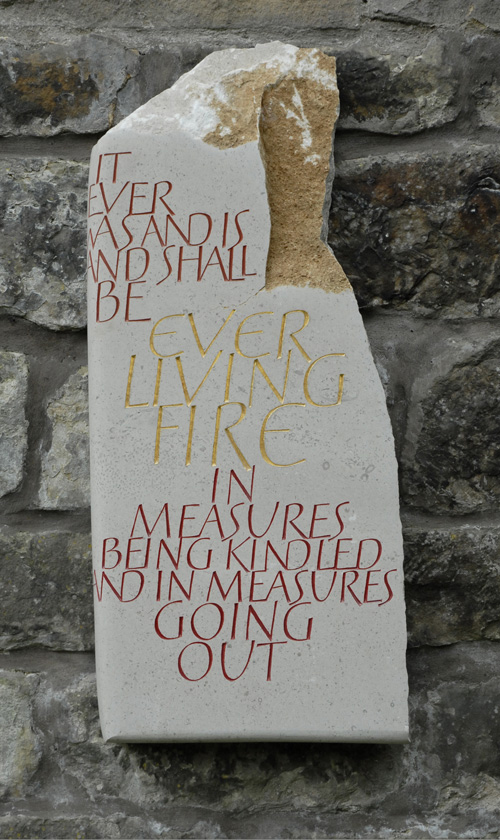 IT
EVER
WAS AND IS
AND SHALL
BE
EVER
LIVING
FIRE
IN
MEASURES
BEING KINDLED
AND IN MEASURES
GOING
OUT